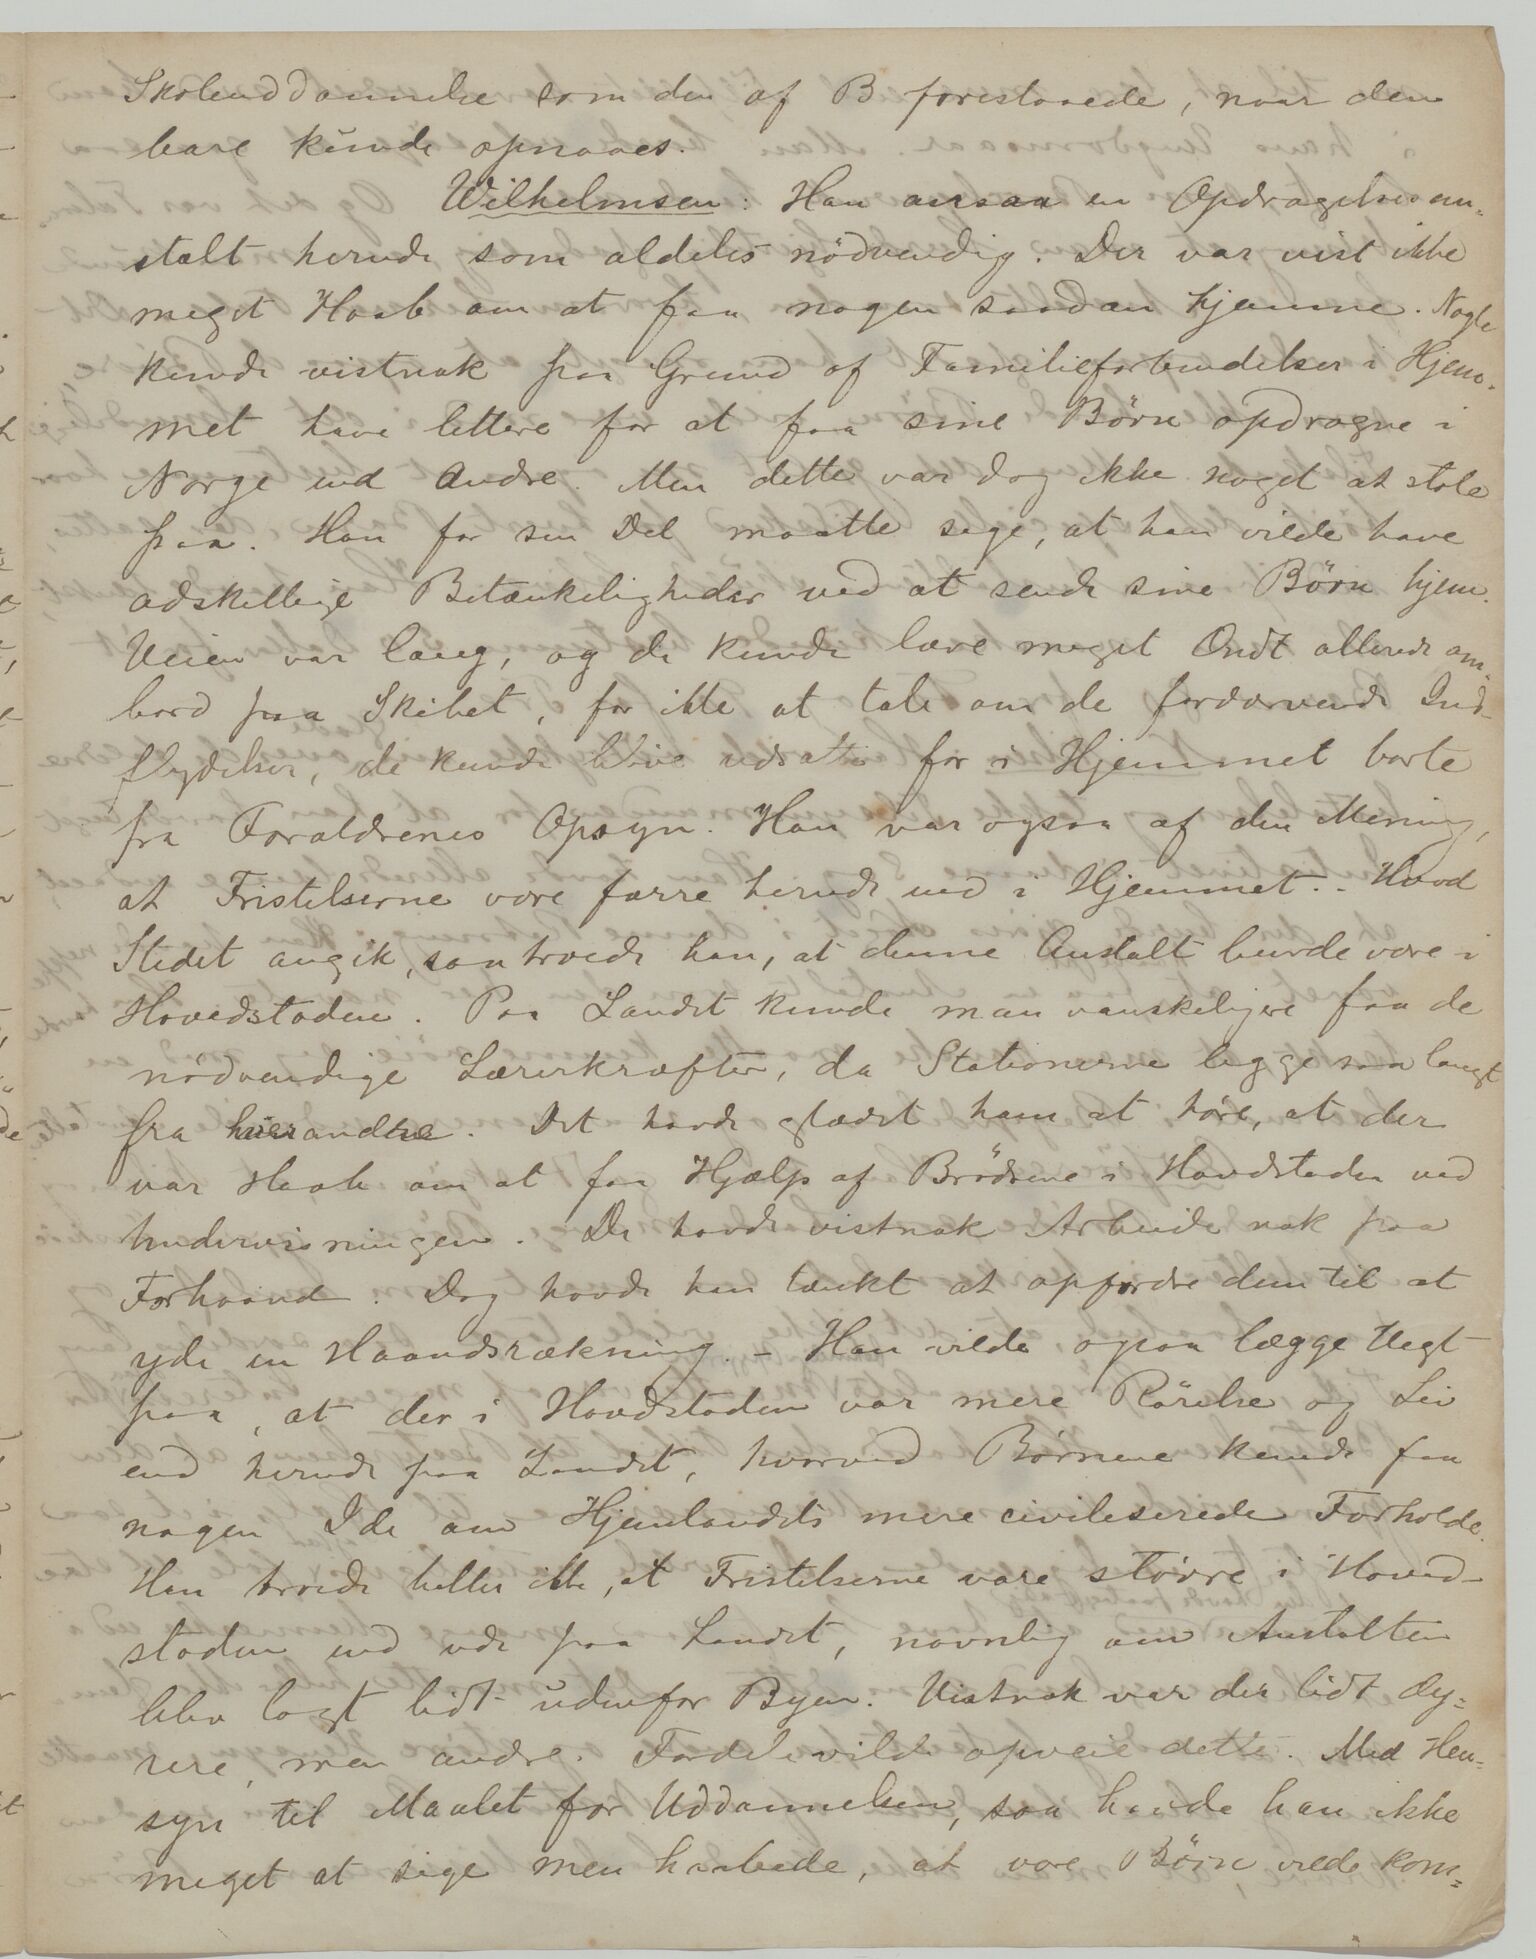 Skoleuddannelse som den af B foreslaaede, naar den
bare kunde opnaaes.
Wilhelmsen: Han ansaa en Opdragelsesan-
stalt herude som aldeles nödvendig. Der var vist ikke
meget Haab om at faa nogen saadan hjemme. Nogle
kunde vistnok paa Grund af Familieforbindelser i Hjem-
met have lettere for at faa sine Börn opdragne i
Norge end Andre. Men dette var dog ikke noget at stole
paa. Han for sin Del maatte sige, at han vilde have
adskellige Betænkeligheder ved at sende sine Börn hjem.
Veien var lang, og de kunde lære meget Ondt allerede om-
bord paa Skibet, for ikke at tale om de fordærvende Ind-
flydelser, de kunde blive udsatte for i Hjemmet borte
fra Forældrenes Opsyn. Han var ogsaa af den Mening,
at Fristelserne vare færre herude end i Hjemmet. - Hvad
Stedet angik, saa troede han, at denne Anstalt burde være i
Hovedstaden. Paa Landet kunde man vanskeligere faa de
nödvendige Lærerkræfter, da Stationerne ligge saa langt
fra hverandre. Det havde glædet ham at höre, at der
var Haab om at faa Hjælp af Brödrene i Hovedstaden ved
Undervisningen. De havde vistnok Arbeide nok paa
Forhaand. Dog havde han tænkt at opfordre dem til at
yde en Haandsrækning. - Han vilde ogsaa lægge Vegt
paa, at der i Hovedstaden var mere Rörelse og Liv
end herude paa Landet, hvorved Börnene kunde faa
nogen Ide om Hjemlandets mere civiliserede Forholde.
Han troede heller ikke, at Fristelserne vare större i Hoved-
staden end ude paa Landet, navnlig om Anstalten
blev lagt lidt udenfor Byen. Vistnok var der lidt dy-
rere, men andre Fordele vilde opveie dette. Med Hen-
syn til Maalet for Uddannelsen, saa havde han ikke
meget at sige men haabede, at vore Börn vilde kom-